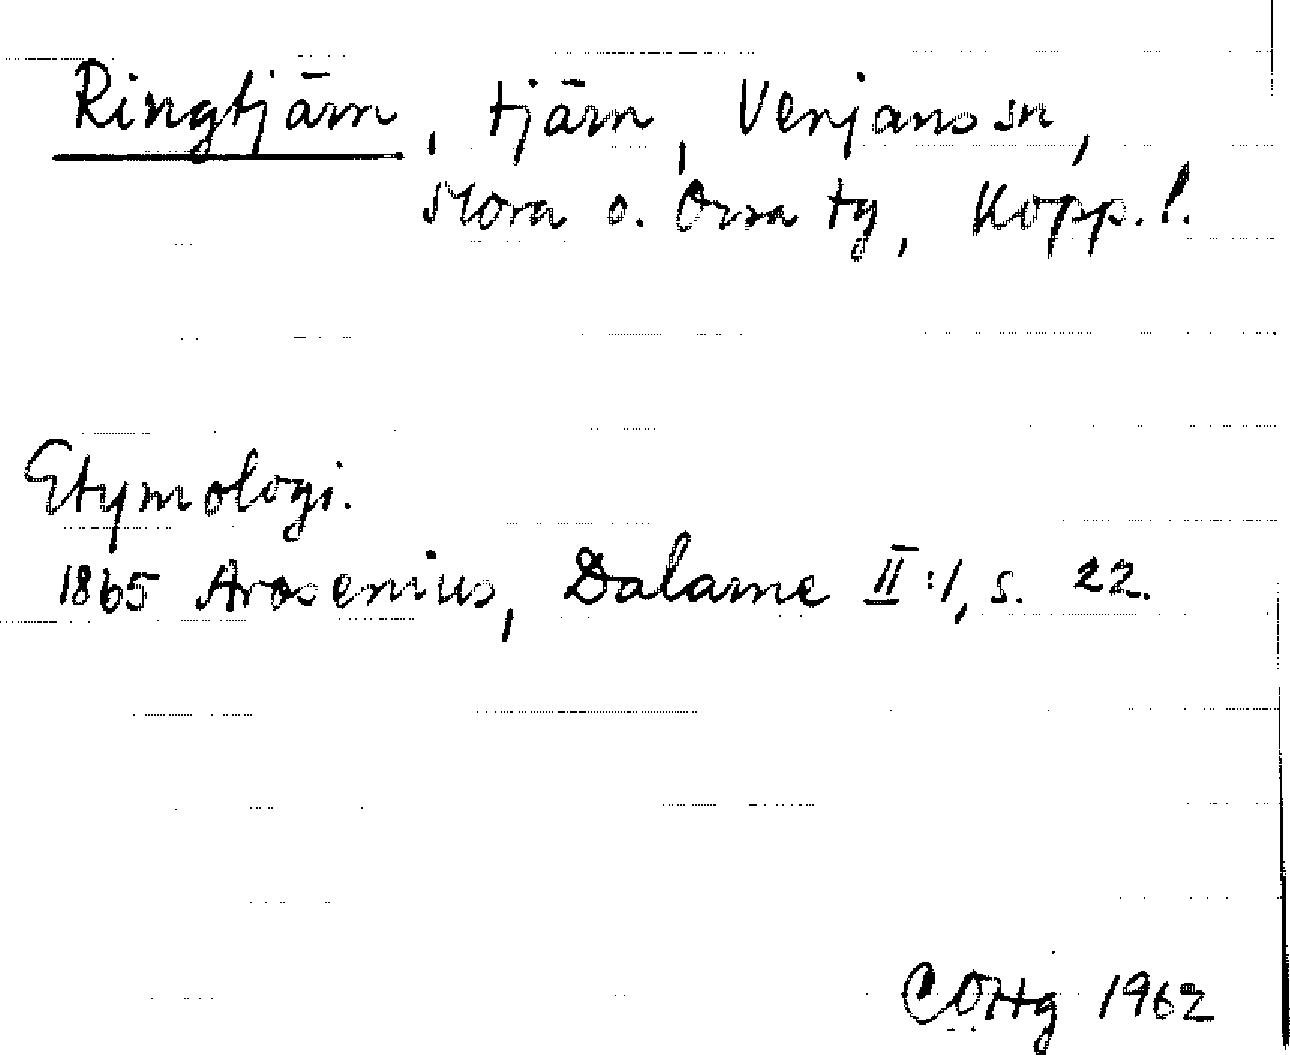 Ringtjärn, tjärn, Venjans sn,
Mora o. Orsa tg, Kopp. l.
Etymologi.
1865 Arosenius, Dalarne II:1, s. 22.
COHg 1962